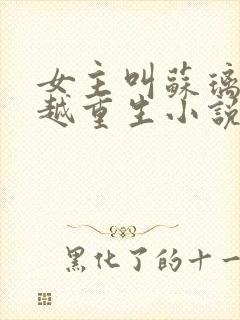 女主叫蘇璃
越重生小説
黑化了的十一